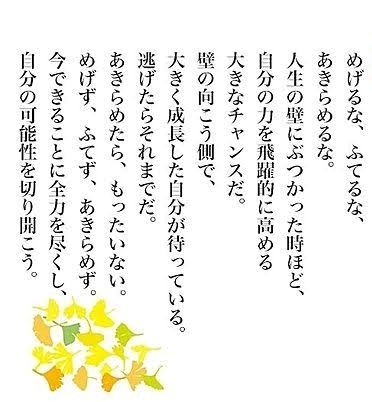 めげるな、ふてるな、
あきらめるな。
人生の壁にぶつかった時ほど、
自分の力を飛躍的に高める
大きなチャンスだ。
壁の向こう側で、
大きく成長した自分が待っている。
逃げたらそれまでだ。
あきらめたら、もったいない。
めげず、ふてず、あきらめず。
今できることに全力を尽くし、
自分の可能性を切り開こう。